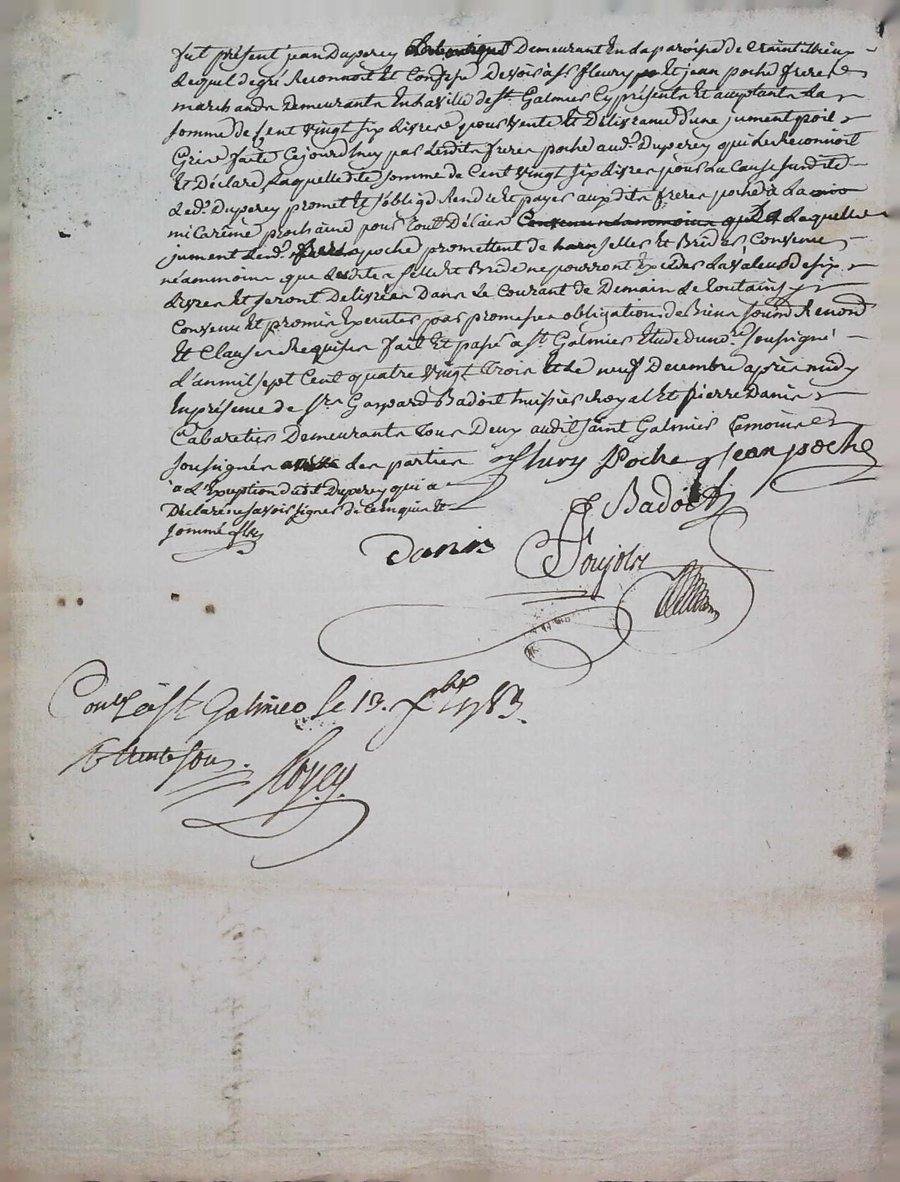 fut présent jean Duperey Demeurant En la paroisse de Craintilleux
Lequel degré Reconnoit Et Confesse Devoir à Srs fleury Et jean poche freres
marchands Demeurants En la ville de St. Galmier Cy présents Et acceptants La
somme de Cent vingt six Livres pour vente Et Délivrance d'une jument poil
Grise faite Cejourd'huy par Lesdits freres poche aud. Duperey qui Le Reconnoit
Et Déclare, Laquelledite somme de Cent vingt six Livres pour La Cause susdite
Led. Duperey promet Et s'oblige Rendre Et payer auxdits freres poche à La
micarême prochaine pour tout Délais Laquelle
jument Lesd. poche promettent de selles Et Brides Convenu
néammoins que Lesdites selle Et Bride ne pourront Excéder La valeur de six
Livres Et seront Delivrées Dans Le Courant de Demain Le toutains y
Convenu Et promis Executer par promesses obligations de Biens soumd Renond
Et Clauses Requises fait Et passé à St Galmier Etude du nore soussigné
L'an mil sept Cent quatre vingt Trois Et Le neuf Décembre après midy
En présence de Srs Gaspard Badoit huissier Royal Et pierre Danis
Cabaretier Demeurants Tous Deux audit saint Galmier temoins
soussignés des parties
à L'Exception dudit Duperey qui a
Déclaré ne savoir signer de Ce Enquis Et
sommé
fleury Poche jean poche
Badoit
Danis
Poujols
Conlé à St Galmier Le 13. Xbre 1783.
sous.